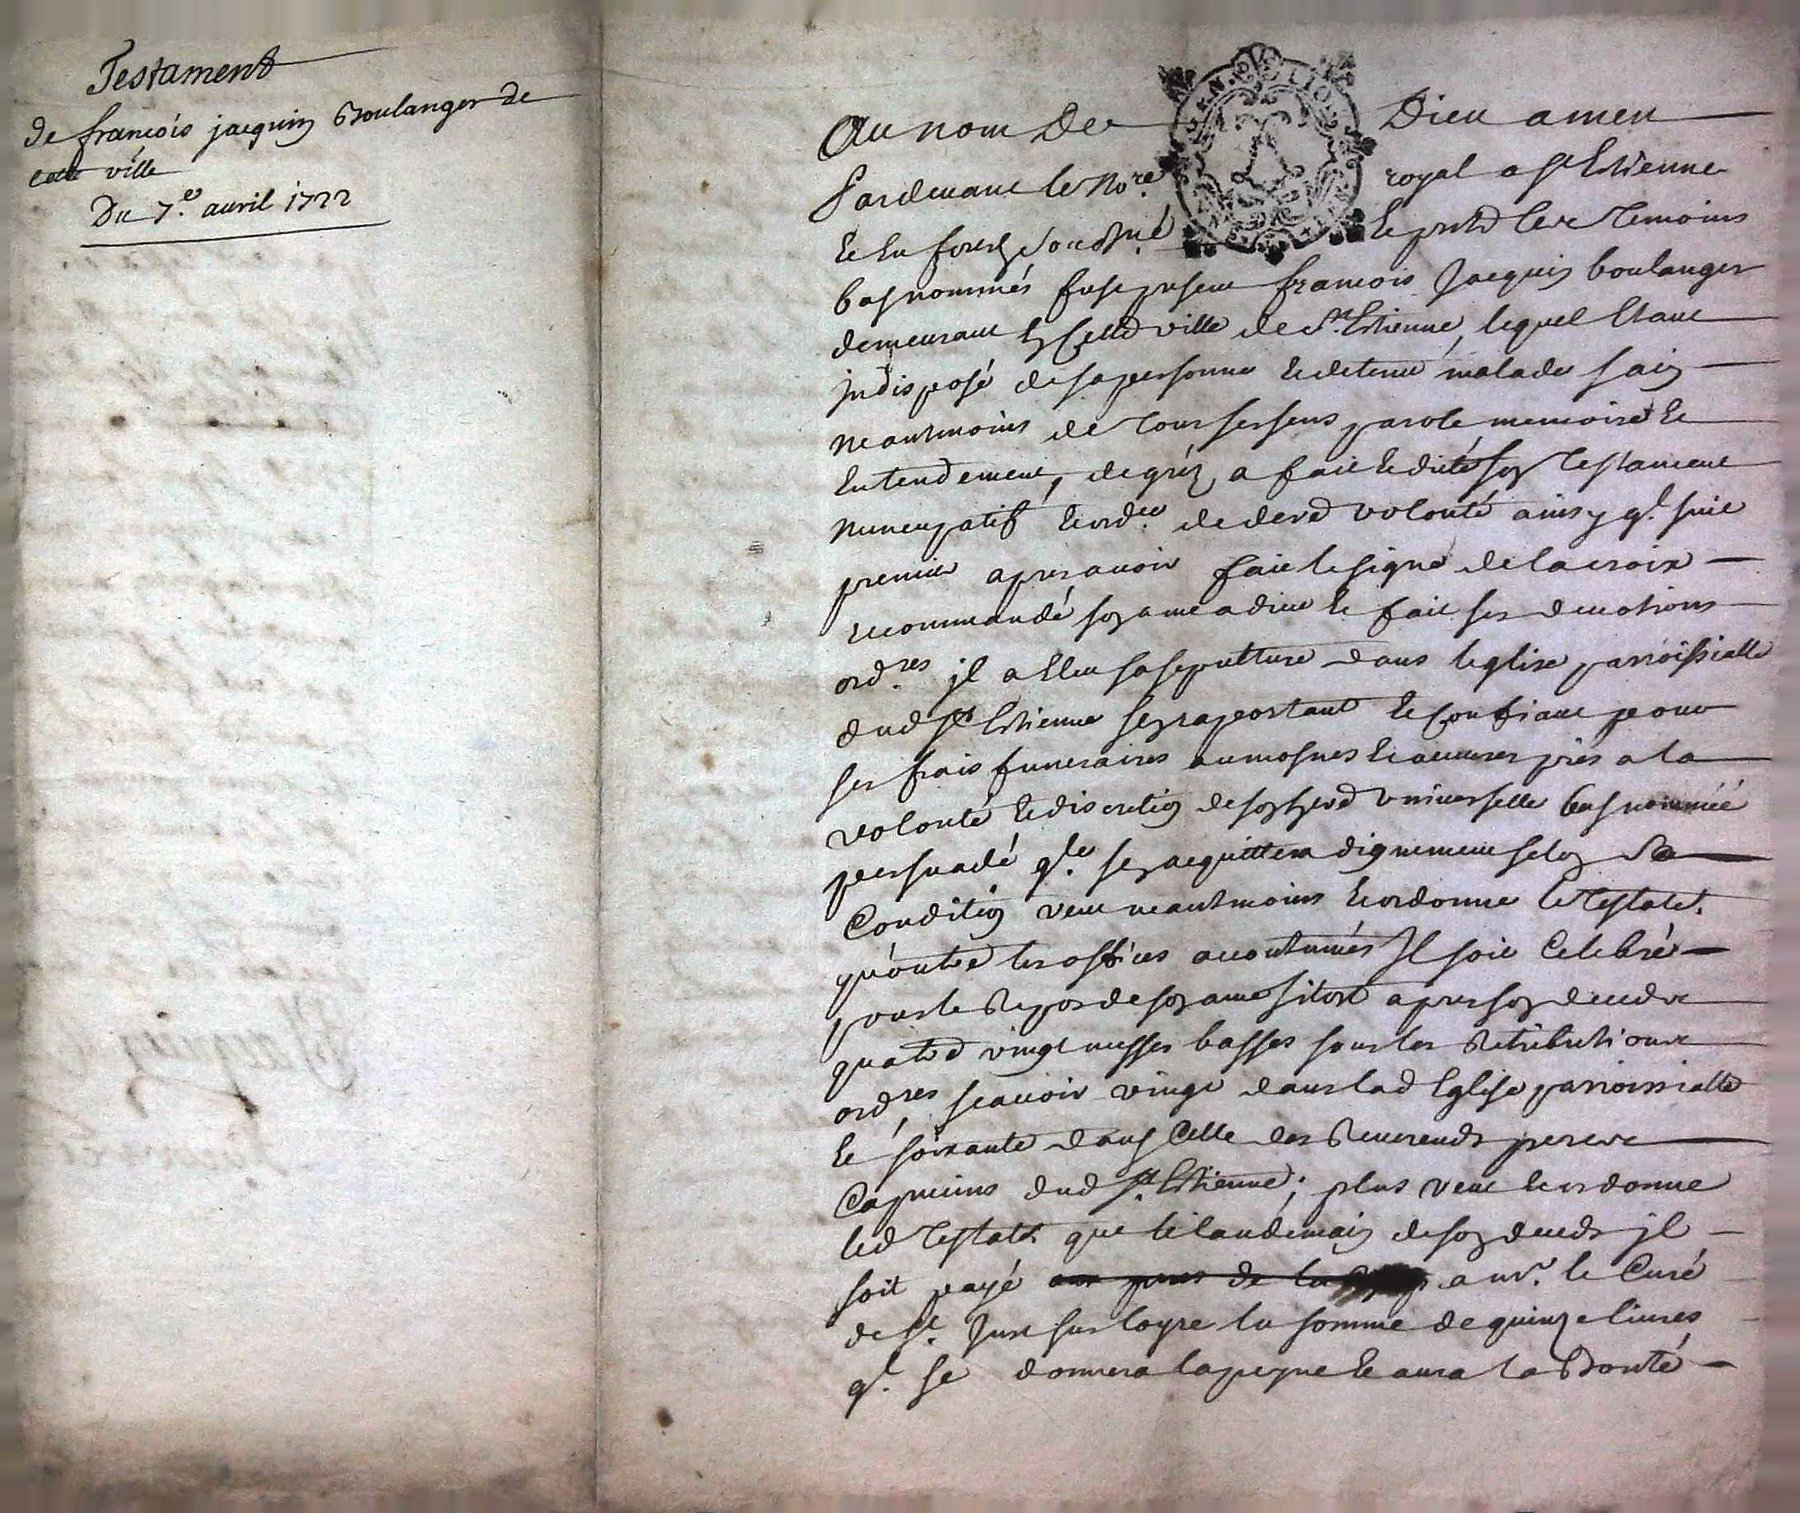 Testament
de francois jacquin Boulanger de
cette ville
Du 7.e avril 1722
GEN. LION
Au nom De Dieu amen
Pardevant le No.re royal a St Estienne
et en forest sousné et pntd les Temoins
basnommés fust present francois Jacquin boulanger
demeurant en cette ville de St Estienne, lequel Estant
indisposé de sa personne et detenu malade sain
neantmoins de tous ses sens parole memoire et
Entendement, de gréz a fait et dicté son Testament
nuncupatif et ord.ce de der.e volonté ainsy q.l suit
premier apres avoir fait le signe de la croix
recommandé son ame a dieu et fait ses devotions
ord.res jl a Eleu sa sepulture dans leglise parroissialle
dud St Estienne sen raportant et confiant pour
ses frais funeraires aumosnes et œuvres pies a la
volonté et discretion de son her.e universelle bas nommée
persuadé q.le sen acquittera dignement selon Sa
Condition veut neantmoins et ordonne le Testat.
qu'outre les offices accoutumés Il soit Celebré
pour le Repos de son ame sitost apres son decedx
quatre vingt messes basses sous les Retributions
ord.res scavoir vingt dans lad Eglise parroissialle
et soixante dans Celle des Reverends peres
Capucins dud St Estienne; plus veut et ordonne
led Testat. que le landemain de son deceds jl
soit payé a mr. le Curé
de St. Just sur loyre la somme de quinze livres
q.l se donnera la peyne et aura la Bonté